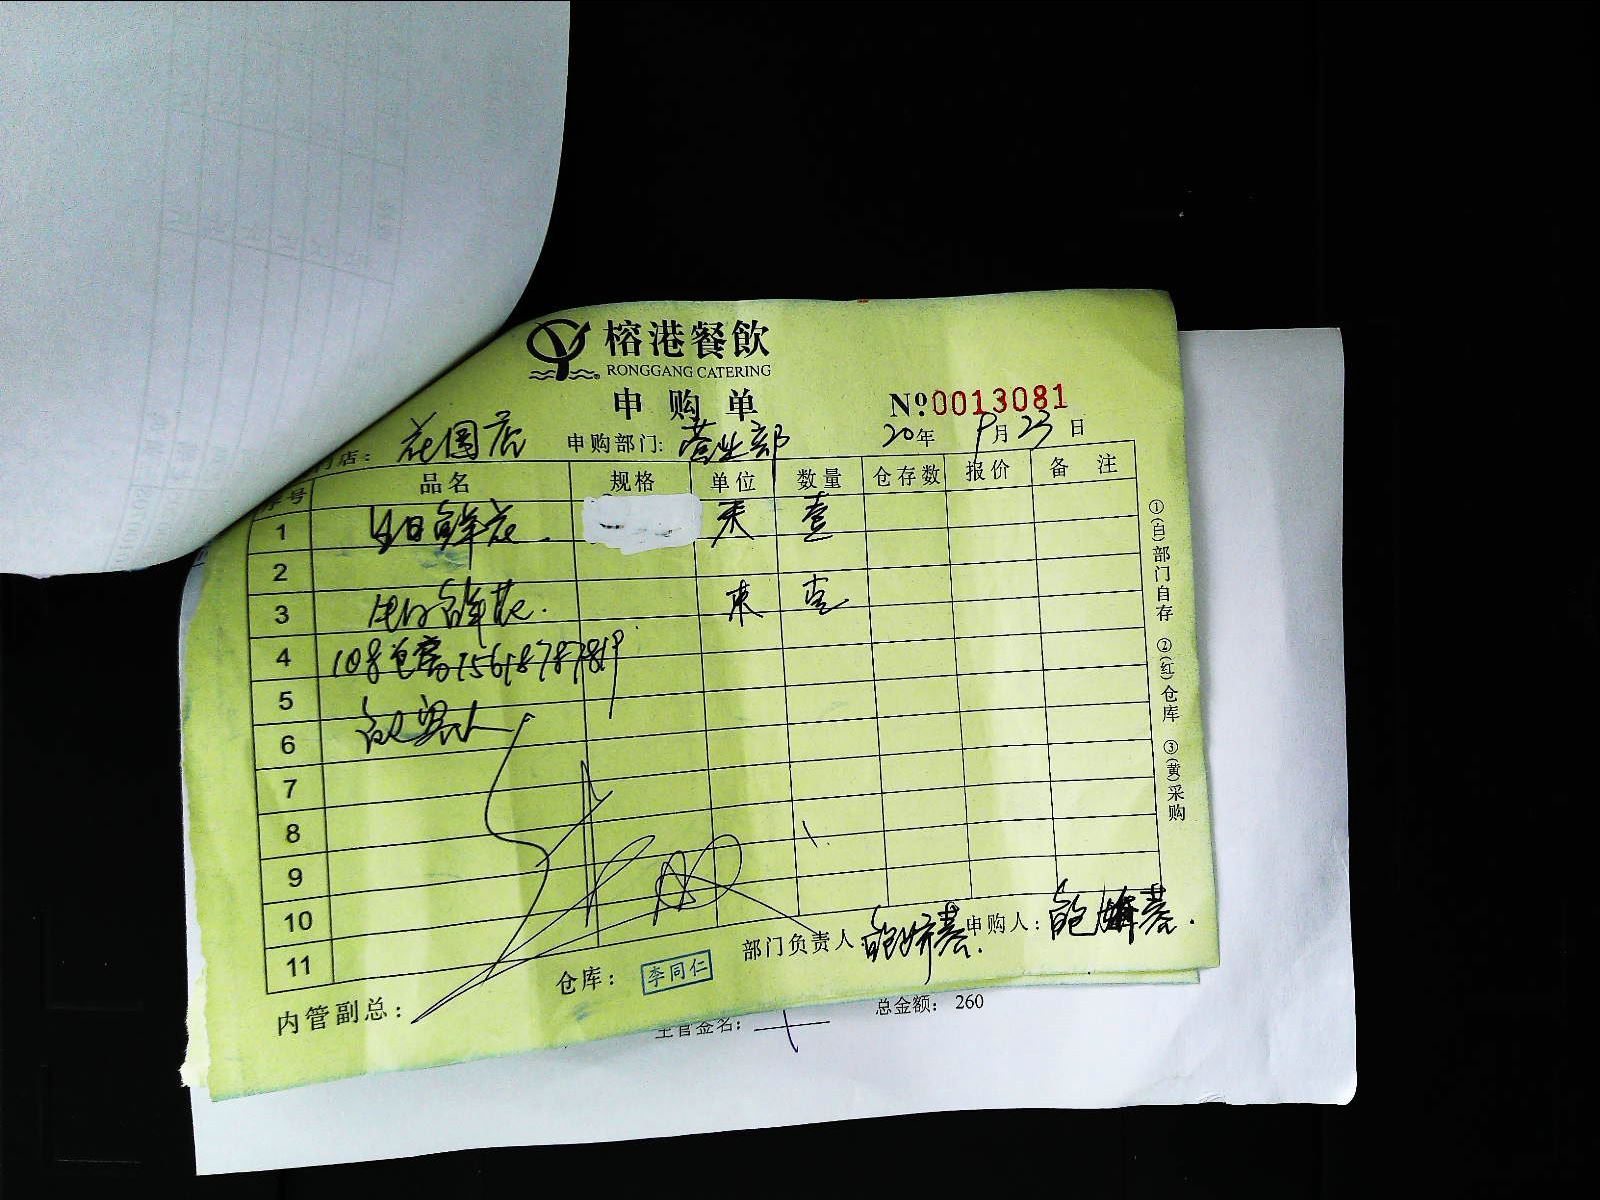 榕港餐飲
RONGGANG CATERING
申购单
№0013081
门店: 花园店 申购部门: 营业部 20年9月23日
序号 品名 规格 单位 数量 仓存数 报价 备注
1 生日鲜花. 束 壹
2
3 生日鲜花. 束 壹
4 108包房15618787819
5
6
7
8
9
10
11
①(白)部门自存 ②(红)仓库 ③(黄)采购
内管副总: 仓库: 李同仁 部门负责人: 申购人:
主管签名: 总金额: 260